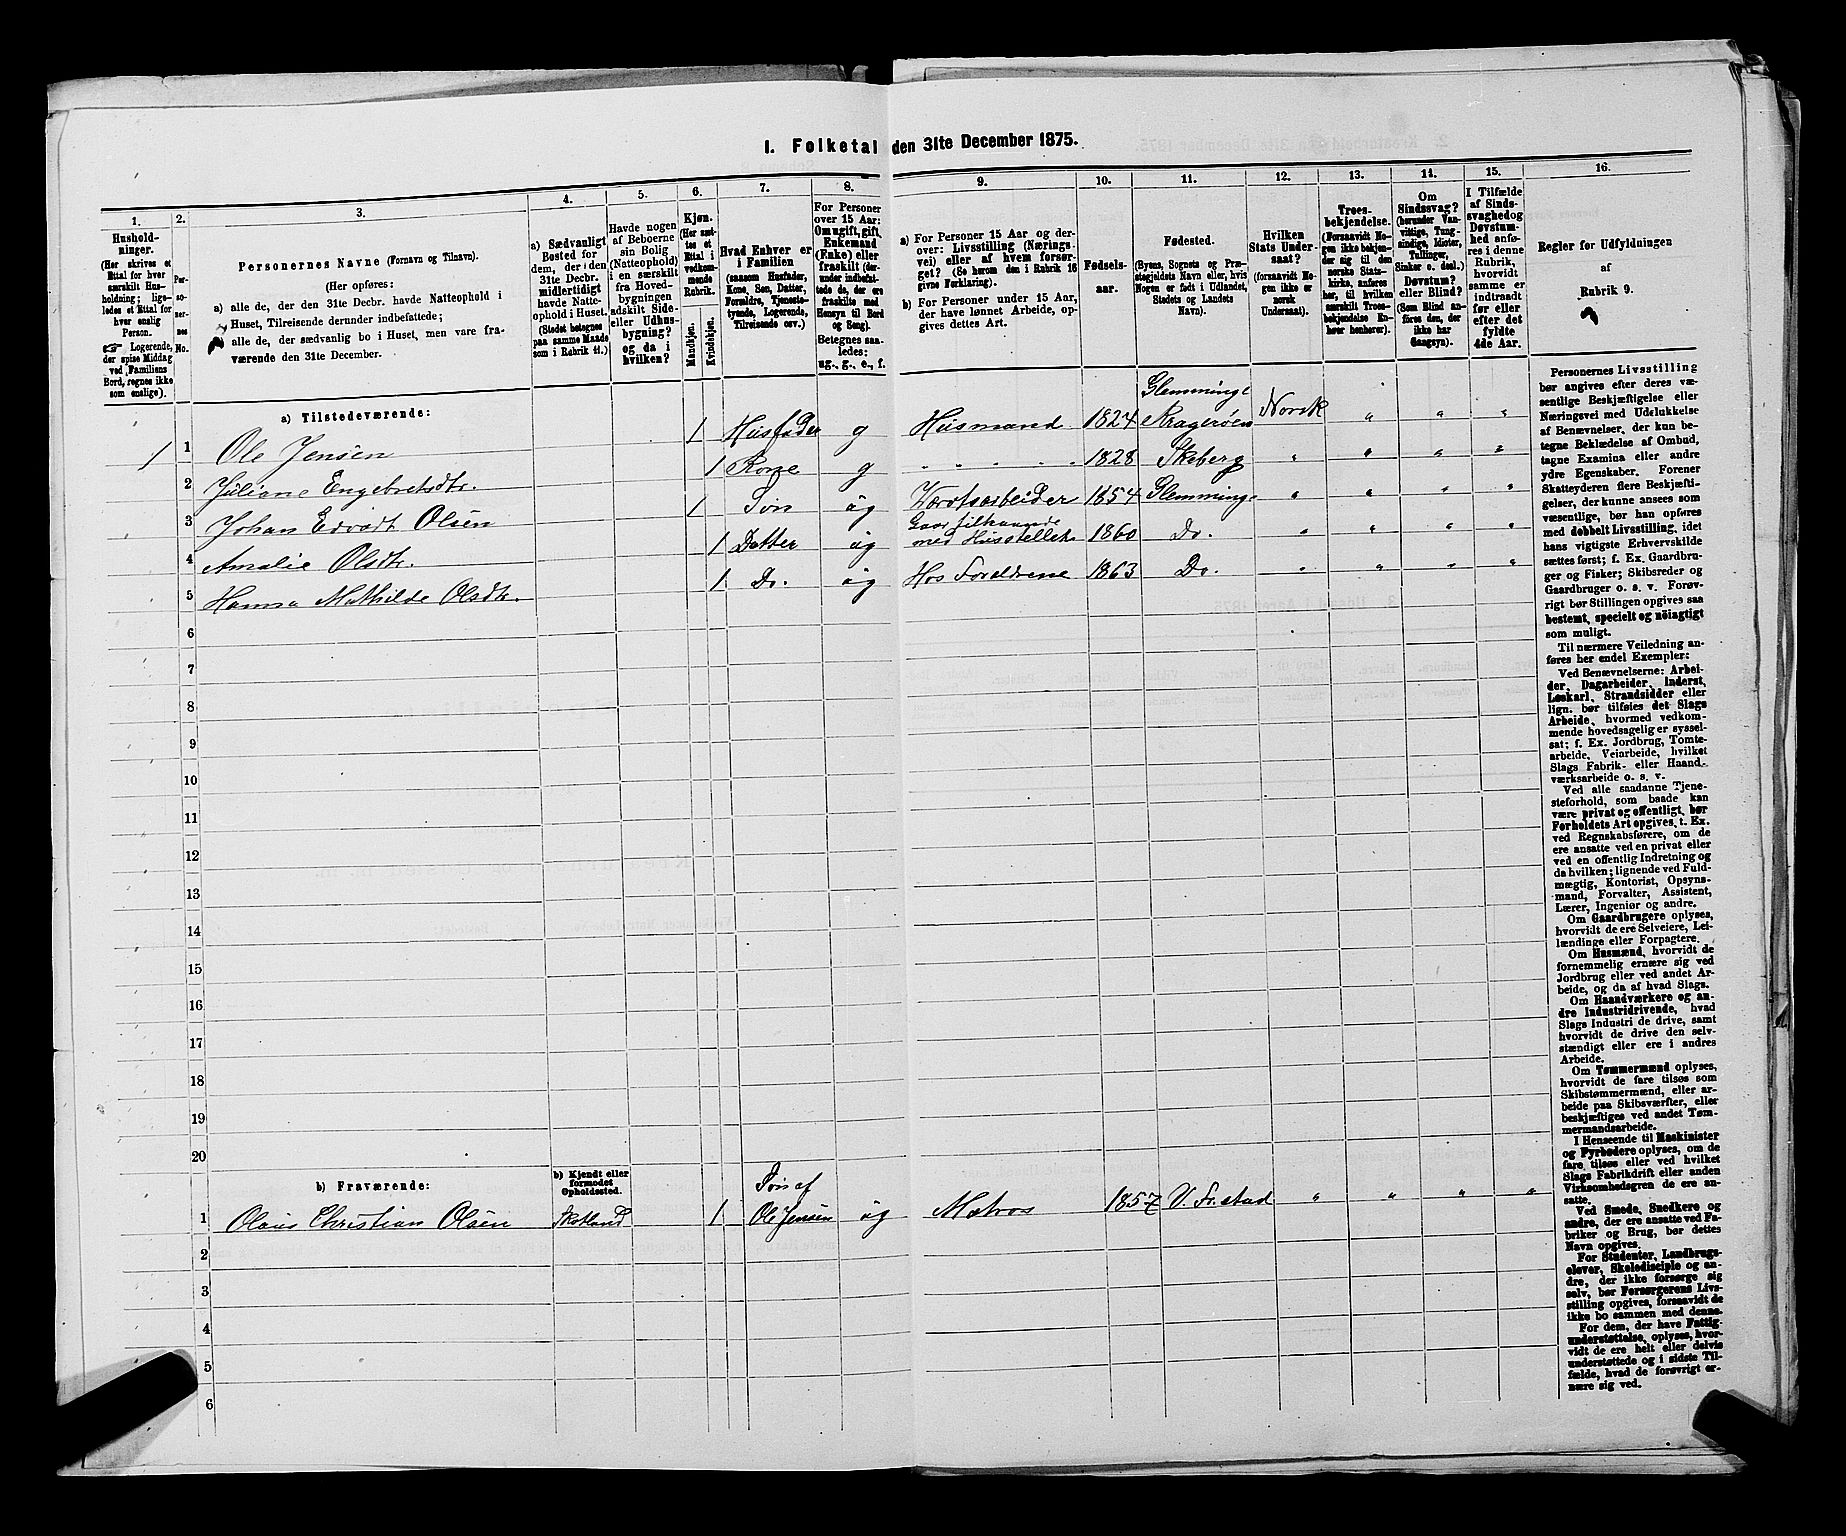 I. Folketal den 31te December 1875.
1. 2. 3. 4. 5. 6. 7. 8. 9. 10. 11. 12. 13. 14. 15. 16.
Hushold-
ninger.
(Her skrives et
Ettal for hver
særskilt Hus-
holdning; lige-
ledes et Ettal for
hver enslig
Person.
☞ Logerende,
der spise Middag
ved Familiens
Bord, regnes ikke
som enslige).
Per-
so-
ner-
nes
No.
Personernes Navne (Fornavn og Tilnavn).
(Her opføres:
a) alle de, der den 31te Decbr. havde Natteophold i
Huset, Tilreisende derunder indbefattede;
b) alle de, der sædvanlig bo i Huset, men vare fra-
værende den 31te December.
a) Sædvanligt
Bosted for
dem, der i den
31te Decbr.
midlertidigt
havde Natte-
ophold i Huset.
(Stedet betegnes
paa samme Maade
som i Rubrik 11.)
Havde nogen
af Beboerne
sin Bolig
(Natteophold)
i en særskilt
fra Hoved-
bygningen
adskilt Side-
eller Udhus-
bygning?
og da i
hvilken?
Kjøn.
(Her sæt-
tes et
Ettal i
vedkom-
mende
Rubrik.
Mandkjøn.
Kvindekjøn.
Hvad Enhver er
i Familien
(saasom Husfader,
Kone, Søn, Datter,
Forældre, Tjeneste-
tyende, Logerende,
Tilreisende osv.)
For Personer
over 15 Aar:
Om ugift, gift,
Enkemand
(Enke) eller
fraskilt (der-
under indbefat-
tede de, der ere
fraskilte med
Hensyn til Bord
og Seng).
Betegnes saa-
ledes:
ug., g., e., f.
a) For Personer 15 Aar og der-
over: Livsstilling (Nærings-
vei) eller af hvem forsør-
get? (Se herom den i Rubrik 16
givne Forklaring).
b) For Personer under 15 Aar,
der have lønnet Arbeide, op-
gives dettes Art.
Fødsels-
aar.
Fødested.
(Byens, Sognets og Præ-
stegjeldets Navn eller, hvis
Nogen er født i Udlandet,
Stedets og Landets
Navn).
Hvilken
Stats Under-
saat?
(forsaavidt No-
gen ikke er
norsk
Undersaat).
Troes-
bekjendelse.
(Forsaavidt No-
gen ikke bekjen-
der sig til den
norske Stats-
kirke, anføres
her, til hvilken
særskilt Troes-
bekjendelse En-
hver henhører).
Om
Sindssvag?
(herunder Van-
vittige, Tung-
sindige, Idioter,
Tullinger,
Sinker o. desl.)
Døvstum?
eller Blind?
(Som Blind an-
føres den, der
ikke har
Gangsyn).
I Tilfælde
af Sinds-
svaghed og
Døvstum-
hed anfø-
res i denne
Rubrik,
hvorvidt
samme er
indtraadt
før eller
efter det
fyldte
4de Aar.
Regler for Udfyldningen
af
Rubrik 9.
a) Tilstedeværende:
1 1 Ole Jensen 1 Husfader g Husmand 1824 Glemminge Kragerøen Norsk " " "
2 Juliane Engebretsdtr. 1 Kone g " " " " " 1828 Skeberg " " " "
3 Johan Edvardt Olsen 1 Søn ug Værftsarbeider 1854 Glemminge " " " "
4 Amalie Olsdtr. 1 Datter ug Gaar tilhaande med Husstellet 1860 Do. " " " "
5 Hanna Mathilde Olsdtr. 1 Do. ug Hos Foreldrene 1863 Do. " " " "
6
7
8
9
10
11
12
13
14
15
16
17
18
19
20
b) Fraværende:
b) Kjendt eller
formodet
Opholdssted.
1 Olaus Christian Olsen Skotland 1 Søn af Ole Jensen ug Matros 1857 V. Fr.stad " " " "
2
3
4
5
6
Personernes Livsstilling
bør angives efter deres væ-
sentlige Beskjæftigelse eller
Næringsvei med Udelukkelse
af Benævnelser, der kun be-
tegne Beklædelse af Ombud,
tagne Examina eller andre
ydre Egenskaber. Forener
Skatteyderen flere Beskjæfti-
gelser, der kunne ansees som
væsentlige, bør han opføres
med dobbelt Livsstilling, idet
hans vigtigste Erhvervskilde
sættes først; f. Ex. Gaardbru-
ger og Fisker; Skibsreder og
Gaardbruger o. s. v. Forøv-
rigt bør Stillingen opgives saa
bestemt, specielt og nöiagtigt
som muligt.
Til nærmere Veiledning an-
føres her endel Exempler:
Ved Benævnelserne: Arbei-
der, Dagarbeider, Inderst,
Løskarl, Strandsidder eller
lign. bør tilføies det Slags
Arbeide, hvormed vedkom-
mende hovedsagelig er syssel-
sat; f. Ex. Jordbrug, Tomte-
arbeide, Veiarbeide, hvilket
Slags Fabrik- eller Haand-
værksarbeide o. s. v.
Ved alle saadanne Tjene-
steforhold, som baade kan
være privat og offentligt, bør
Forholdets Art opgives, t. Ex.
ved Regnskabsførere, om de
ere ansatte ved en privat eller
ved en offentlig Indretning og
da hvilken; lignende ved Fuld-
mægtig, Kontorist, Opsyns-
mand, Forvalter, Assistent,
Lærer, Ingeniør og andre.
Om Gaardbrugere oplyses,
hvorvidt de ere Selveiere, Lei-
lændinge eller Forpagtere.
Om Husmænd, hvorvidt de
fornemmelig ernære sig ved
Jordbrug eller ved andet Ar-
beide, og da af hvad Slags.
Om Haandværkere og an-
dre Industridrivende, hvad
Slags Industri de drive, samt
hvorvidt de drive den selv-
stændigt eller ere i andres
Arbeide.
Om Tømmermænd oplyses,
hvorvidt de fare tilsøs som
Skibstømmermænd, eller ar-
beide paa Skibsværfter, eller
beskjæftiges ved andet Tøm-
mermandsarbeide.
I Henseende til Maskinister
og Fyrbødere oplyses, om de
fare tilsøs eller ved hvilket
Slags Fabrikdrift eller anden
Virksomhedsgren de ere an-
satte.
Ved Smede, Snedkere og
andre, der ere ansatte ved Fa-
briker og Brug, bør dettes
Navn opgives.
For Studenter, Landbrugs-
elever, Skoledisciple og an-
dre, der ikke forsørge sig
selv, bør Forsørgerens Livs-
stilling opgives, forsaavidt de
ikke bo sammen med denne.
For dem, der have Fattig-
understøttelse, oplyses, hvor-
vidt de ere helt eller delvis
understøttede og i sidste Til-
fælde, hvad de forøvrigt er-
nære sig ved.